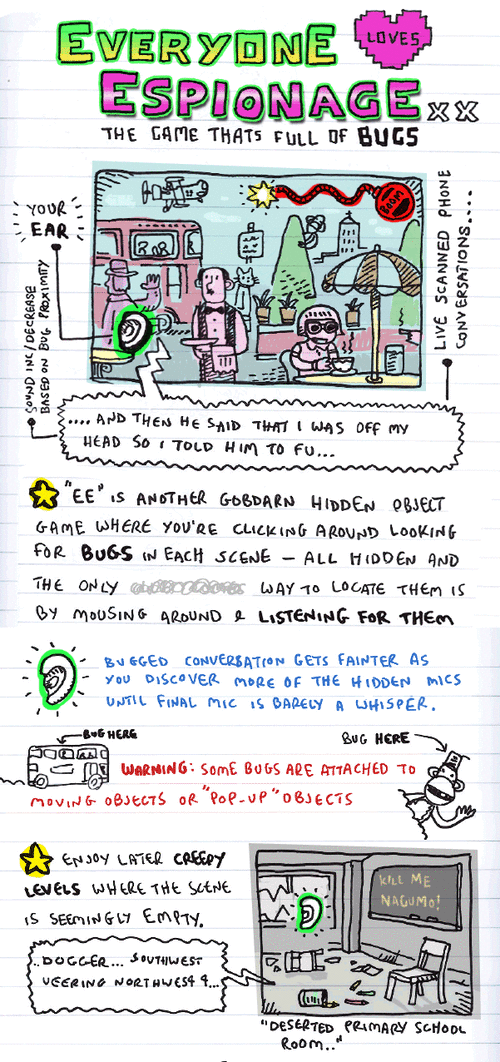 EVERYONE
LOVES
ESPIONAGE XX
THE GAME THATS FULL OF BUGS
YOUR
EAR
SOUND INC/DECREASE
BASED ON BUG PROXIMITY
BOOM!
LIVE SCANNED PHONE
CONVERSATIONS....
.... AND THEN HE SAID THAT I WAS OFF MY
HEAD SO I TOLD HIM TO FU...
"EE" IS ANOTHER GOBDARN HIDDEN OBJECT
GAME WHERE YOU'RE CLICKING AROUND LOOKING
FOR BUGS IN EACH SCENE – ALL HIDDEN AND
THE ONLY WAY TO LOCATE THEM IS
BY MOUSING AROUND & LISTENING FOR THEM
BUGGED CONVERSATION GETS FAINTER AS
YOU DISCOVER MORE OF THE HIDDEN MICS
UNTIL FINAL MIC IS BARELY A WHISPER.
BUG HERE
BUG HERE
WARNING: SOME BUGS ARE ATTACHED TO
MOVING OBJECTS OR "POP-UP" OBJECTS
ENJOY LATER CREEPY
LEVELS WHERE THE SCENE
IS SEEMINGLY EMPTY.
KILL ME
NAGUMO!
..DOGGER... SOUTHWEST
VEERING NORTHWEST 4...
"DESERTED PRIMARY SCHOOL
ROOM.."